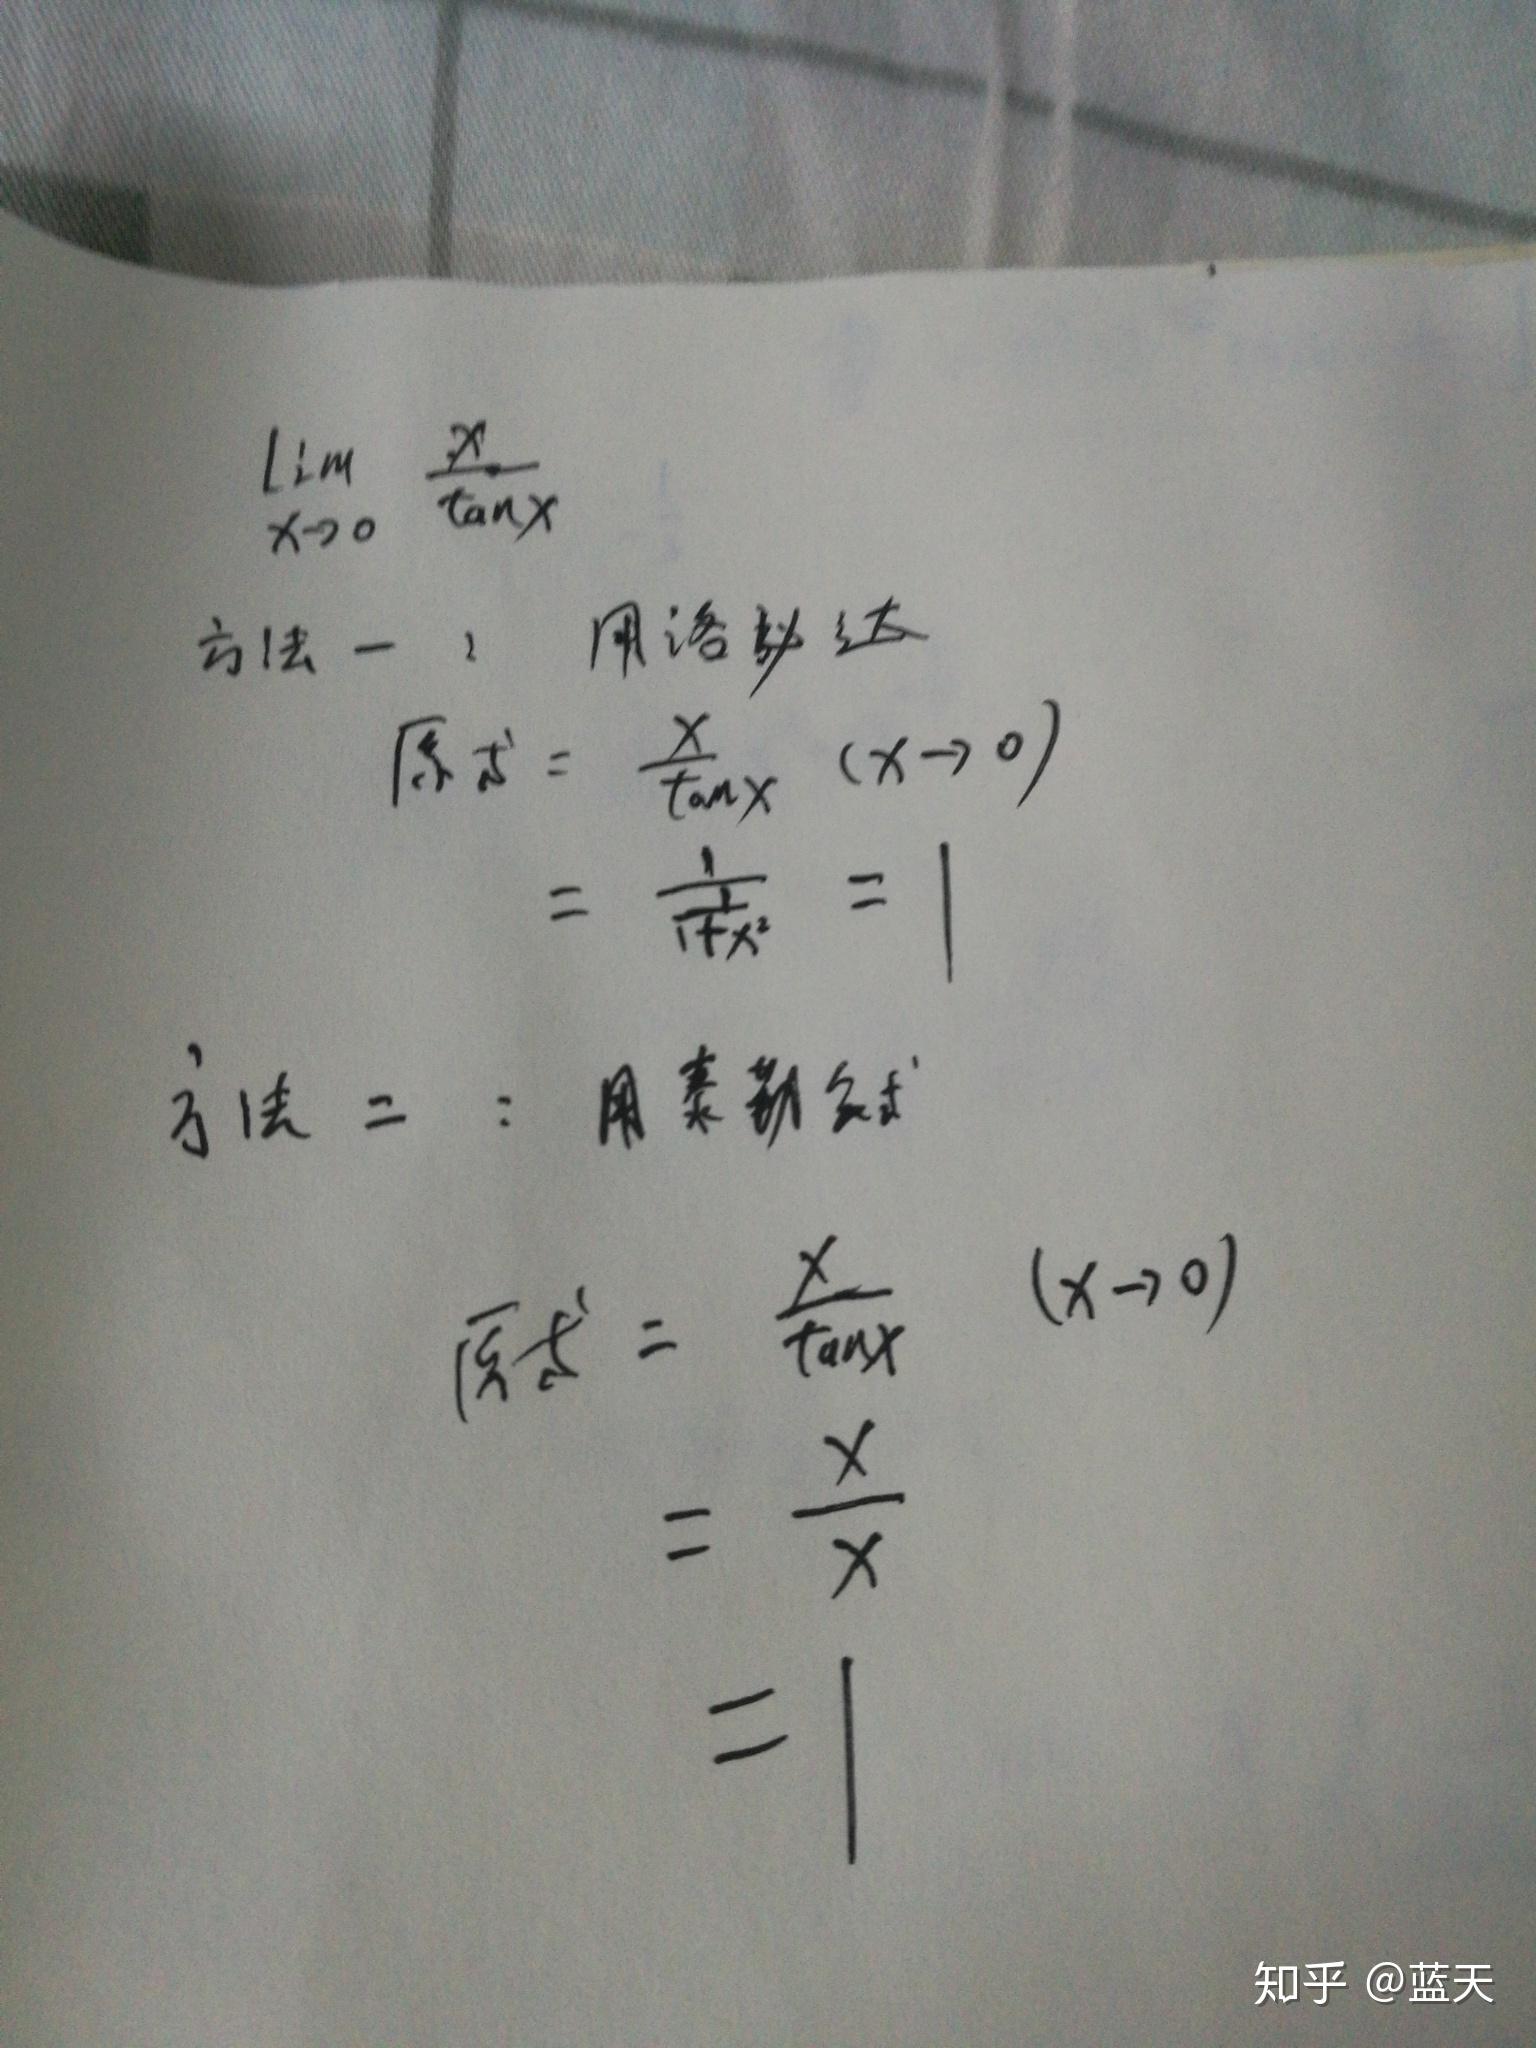 lim x/tanx
x→0
方法一： 用洛必达
原式 = x/tanx (x→0)
= 1/(1/(1+x²)) = 1
方法二： 用泰勒公式
原式 = x/tanx (x→0)
= x/x
= 1
知乎 @蓝天